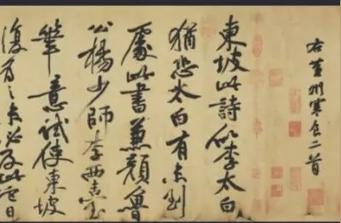 右黄州寒食二首
東坡此詩似李太白
猶恐太白有未到
處此書兼顔魯
公楊少師李西臺
筆意試使東坡
復為之未必及此它日